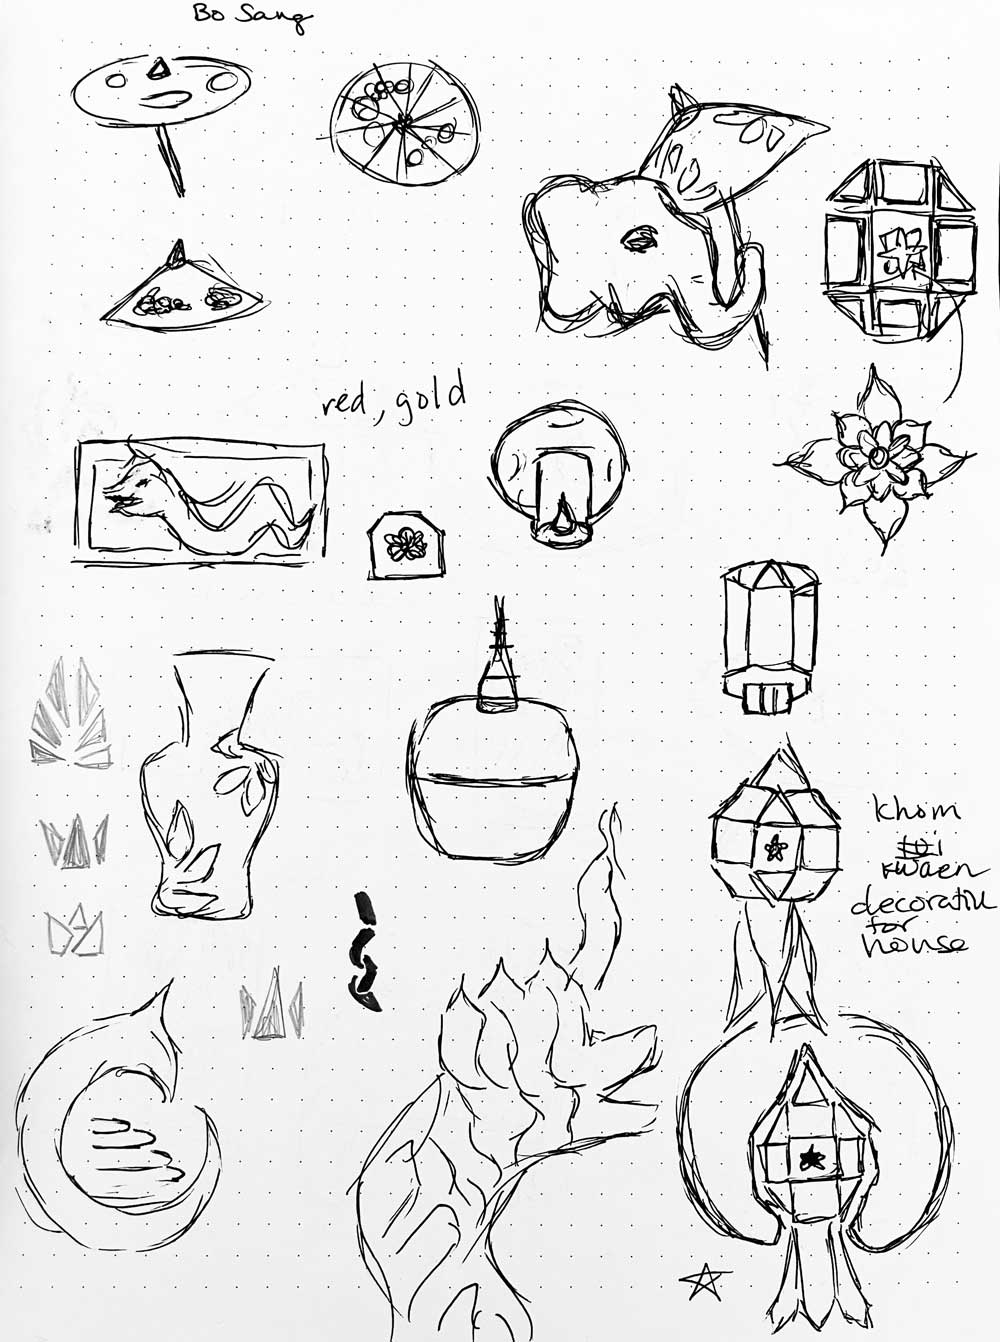 Bo Sang
red, gold
khom
kwaen
decorative
for
house